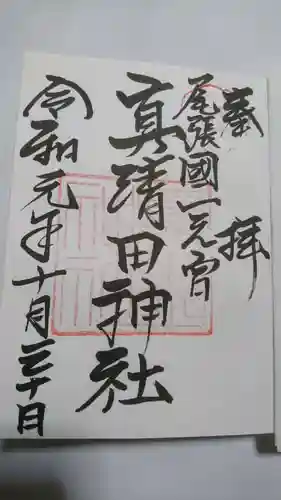 奉拝
尾張國一之宮
真清田神社
令和元年十月三十日